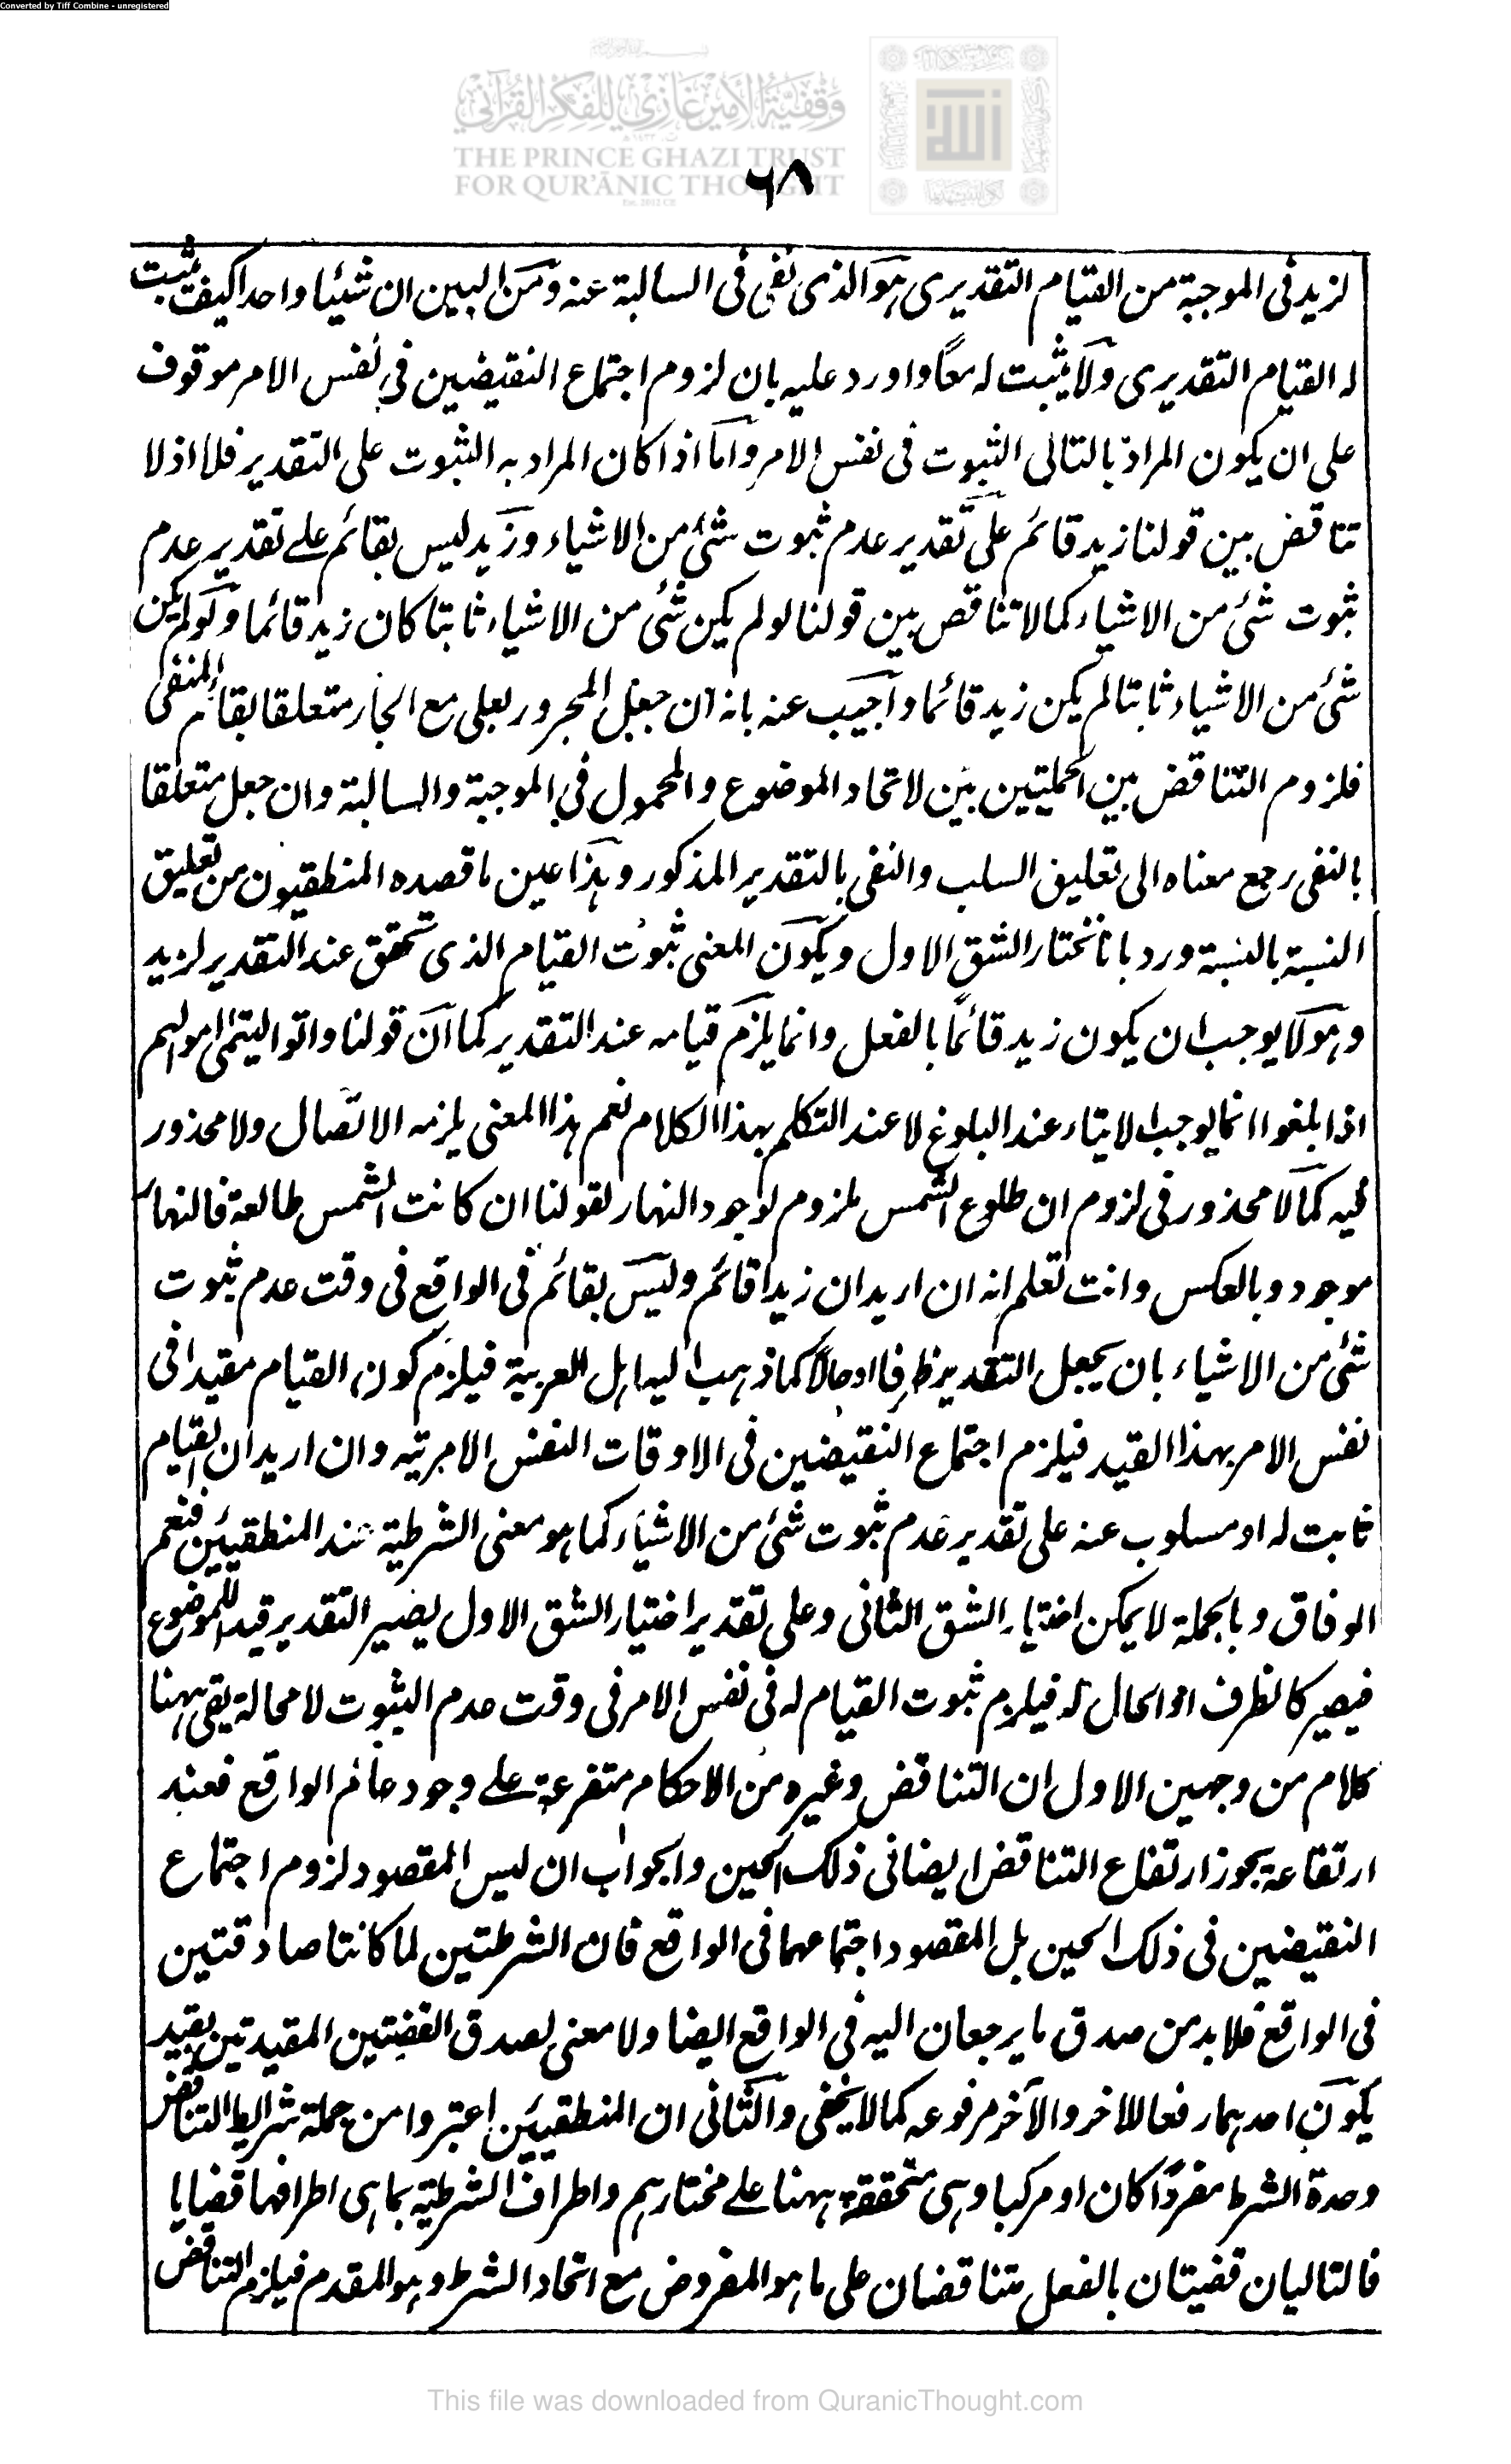 Converted by Tiff Combine - unregistered
وقفية الأمير غازي للفكر القرآني
THE PRINCE GHAZI TRUST
FOR QUR'ĀNIC THOUGHT
٦٨
لزيد فى الموجبة من القيام التقديرى هو الذى نفى فى السالبة عنه ومن البين ان شيئا واحدا كيف يثبت
له القيام التقديرى ولا يثبت له معًا واورد عليه بان لزوم اجتماع النقيضين فى نفس الامر موقوف
على ان يكون المراد بالتالى الثبوت فى نفس الامر واما اذا كان المراد به الثبوت على التقدير فلا اذ لا
تناقض بين قولنا زيد قائم على تقدير عدم ثبوت شئ من الاشياء وزيد ليس بقائم على تقدير عدم
ثبوت شئ من الاشياء كما لا تناقض بين قولنا لو لم يكن شئ من الاشياء ثابتا كان زيد قائما ولو لم يكن
شئ من الاشياء ثابتا لم يكن زيد قائما واجيب عنه بانه ان جعل المجرور بعلى مع الجار متعلقا بقائم المنفى
فلزوم التناقض بين الحمليتين بين لاتحاد الموضوع والمحمول فى الموجبة والسالبة وان جعل متعلقا
بالنفى رجع معناه الى تعليق السلب والنفى بالتقدير المذكور وهذا عين ما قصده المنطقيون من تعليق
النسبة بالنسبة ورد بانا نختار الشق الاول ويكون المعنى ثبوت القيام الذى تحقق عند التقدير لزيد
وهو لا يوجب ان يكون زيد قائمًا بالفعل وانما يلزم قيامه عند التقدير كما ان قولنا واتوا اليتمى اموالهم
اذا بلغوا انما يوجب الايتاء عند البلوغ لا عند التكلم بهذا الكلام نعم هذا المعنى يلزمه الاتصال ولا محذور
فيه كما لا محذور فى لزوم ان طلوع الشمس ملزوم لوجود النهار لقولنا ان كانت الشمس طالعة فالنهار
موجود وبالعكس وانت تعلم انه ان اريد ان زيدا قائم وليس بقائم فى الواقع فى وقت عدم ثبوت
شئ من الاشياء بان يجعل التقدير ظرفا او حالًا كما ذهب اليه اهل العربية فيلزم كون القيام مقيدا فى
نفس الامر بهذا القيد فيلزم اجتماع النقيضين فى الاوقات النفس الامرية وان اريد ان القيام
ثابت له او مسلوب عنه على تقدير عدم ثبوت شئ من الاشياء كما هو معنى الشرطية عند المنطقيين فنعم
الوفاق وبالجملة لا يمكن اختيار الشق الثانى وعلى تقدير اختيار الشق الاول يصير التقدير قيدا للموضوع
فيصير كالظرف او الحال له فيلزم ثبوت القيام له فى نفس الامر فى وقت عدم الثبوت لا محالة بقى ههنا
كلام من وجهين الاول ان التناقض وغيره من الاحكام متفرعة على وجود عالم الواقع فعند
ارتفاعه يجوز ارتفاع التناقض ايضا فى ذلك الحين والجواب ان ليس المقصود لزوم اجتماع
النقيضين فى ذلك الحين بل المقصود اجتماعهما فى الواقع فان الشرطتين لما كانتا صادقتين
فى الواقع فلا بد من صدق ما يرجعان اليه فى الواقع ايضا ولا معنى لصدق القضيتين المقيدتين بقيد
يكون احدهما رفعا للاخر والآخر مرفوعه كما لا يخفى والثانى ان المنطقيين اعتبروا من جملة شرائط التناقض
وحدة الشرط مفردًا كان او مركبا وهى متحققة ههنا على مختارهم واطراف الشرطية بما هى اطرافها قضايا
فالتاليان قضيتان بالفعل متناقضان على ما هو المفروض مع اتحاد الشرط وهو المقدم فيلزم التناقض
This file was downloaded from QuranicThought.com